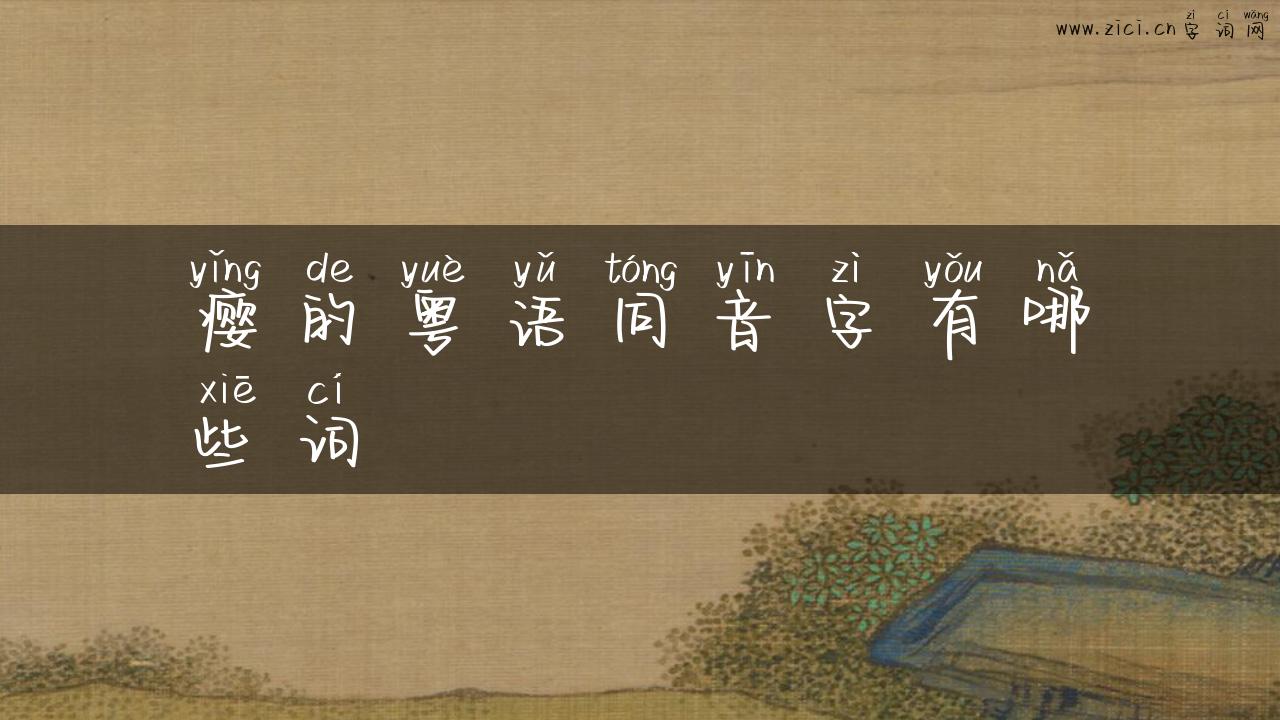 zì cí wǎng
www.zici.cn 字 词 网
yǐng de yuè yǔ tóng yīn zì yǒu nǎ
瘿 的 粤 语 同 音 字 有 哪
xiē cí
些 词